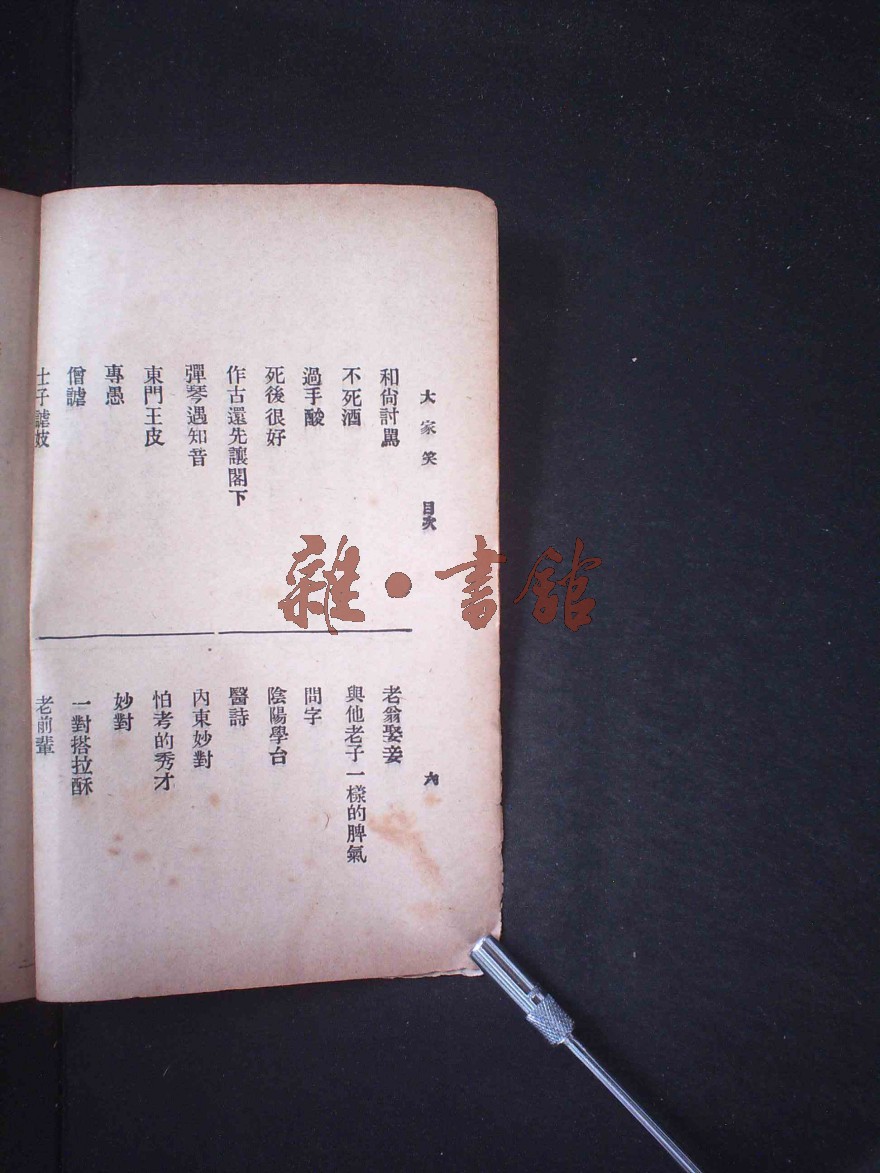 大家笑 目次
六
和尙討罵
不死酒
過手酸
死後很好
作古還先讓閣下
彈琴遇知音
東門王皮
專愚
僧謔
士子謔妓
老翁娶妾
與他老子一樣的脾氣
問字
陰陽學台
醫詩
內東妙對
怕考的秀才
妙對
一對搭拉酥
老前輩
雜·書館